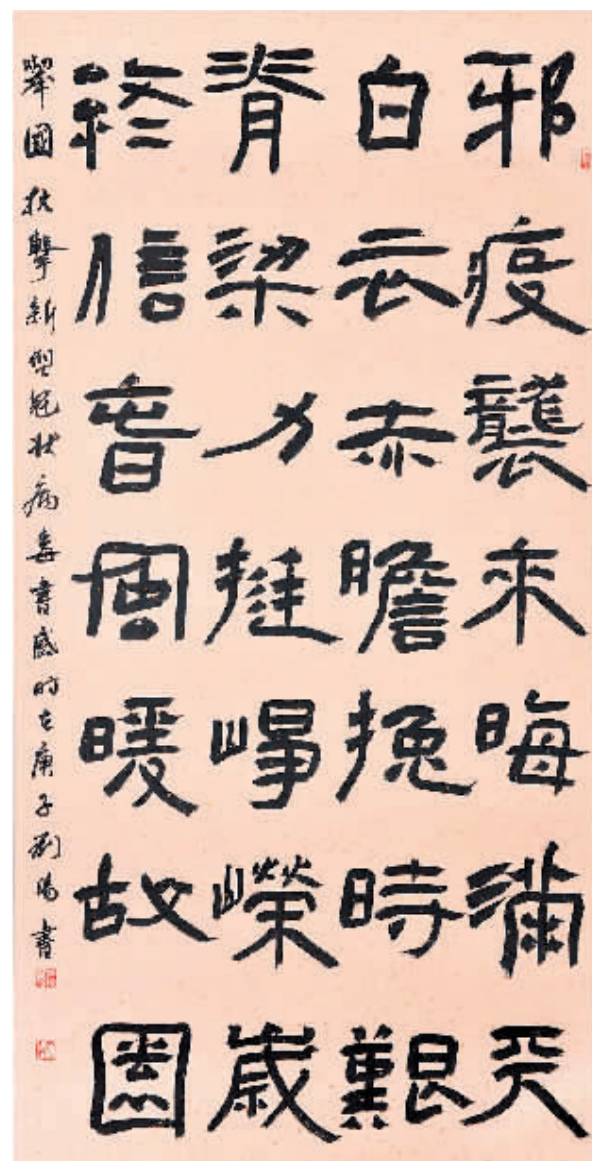 邪疫襲来晦滿天
白衣赤膽挽時艱
脊梁力挺崢嶸歲
終信春風暖故園
舉國抗擊新型冠狀病毒書感时在庚子劉陽書